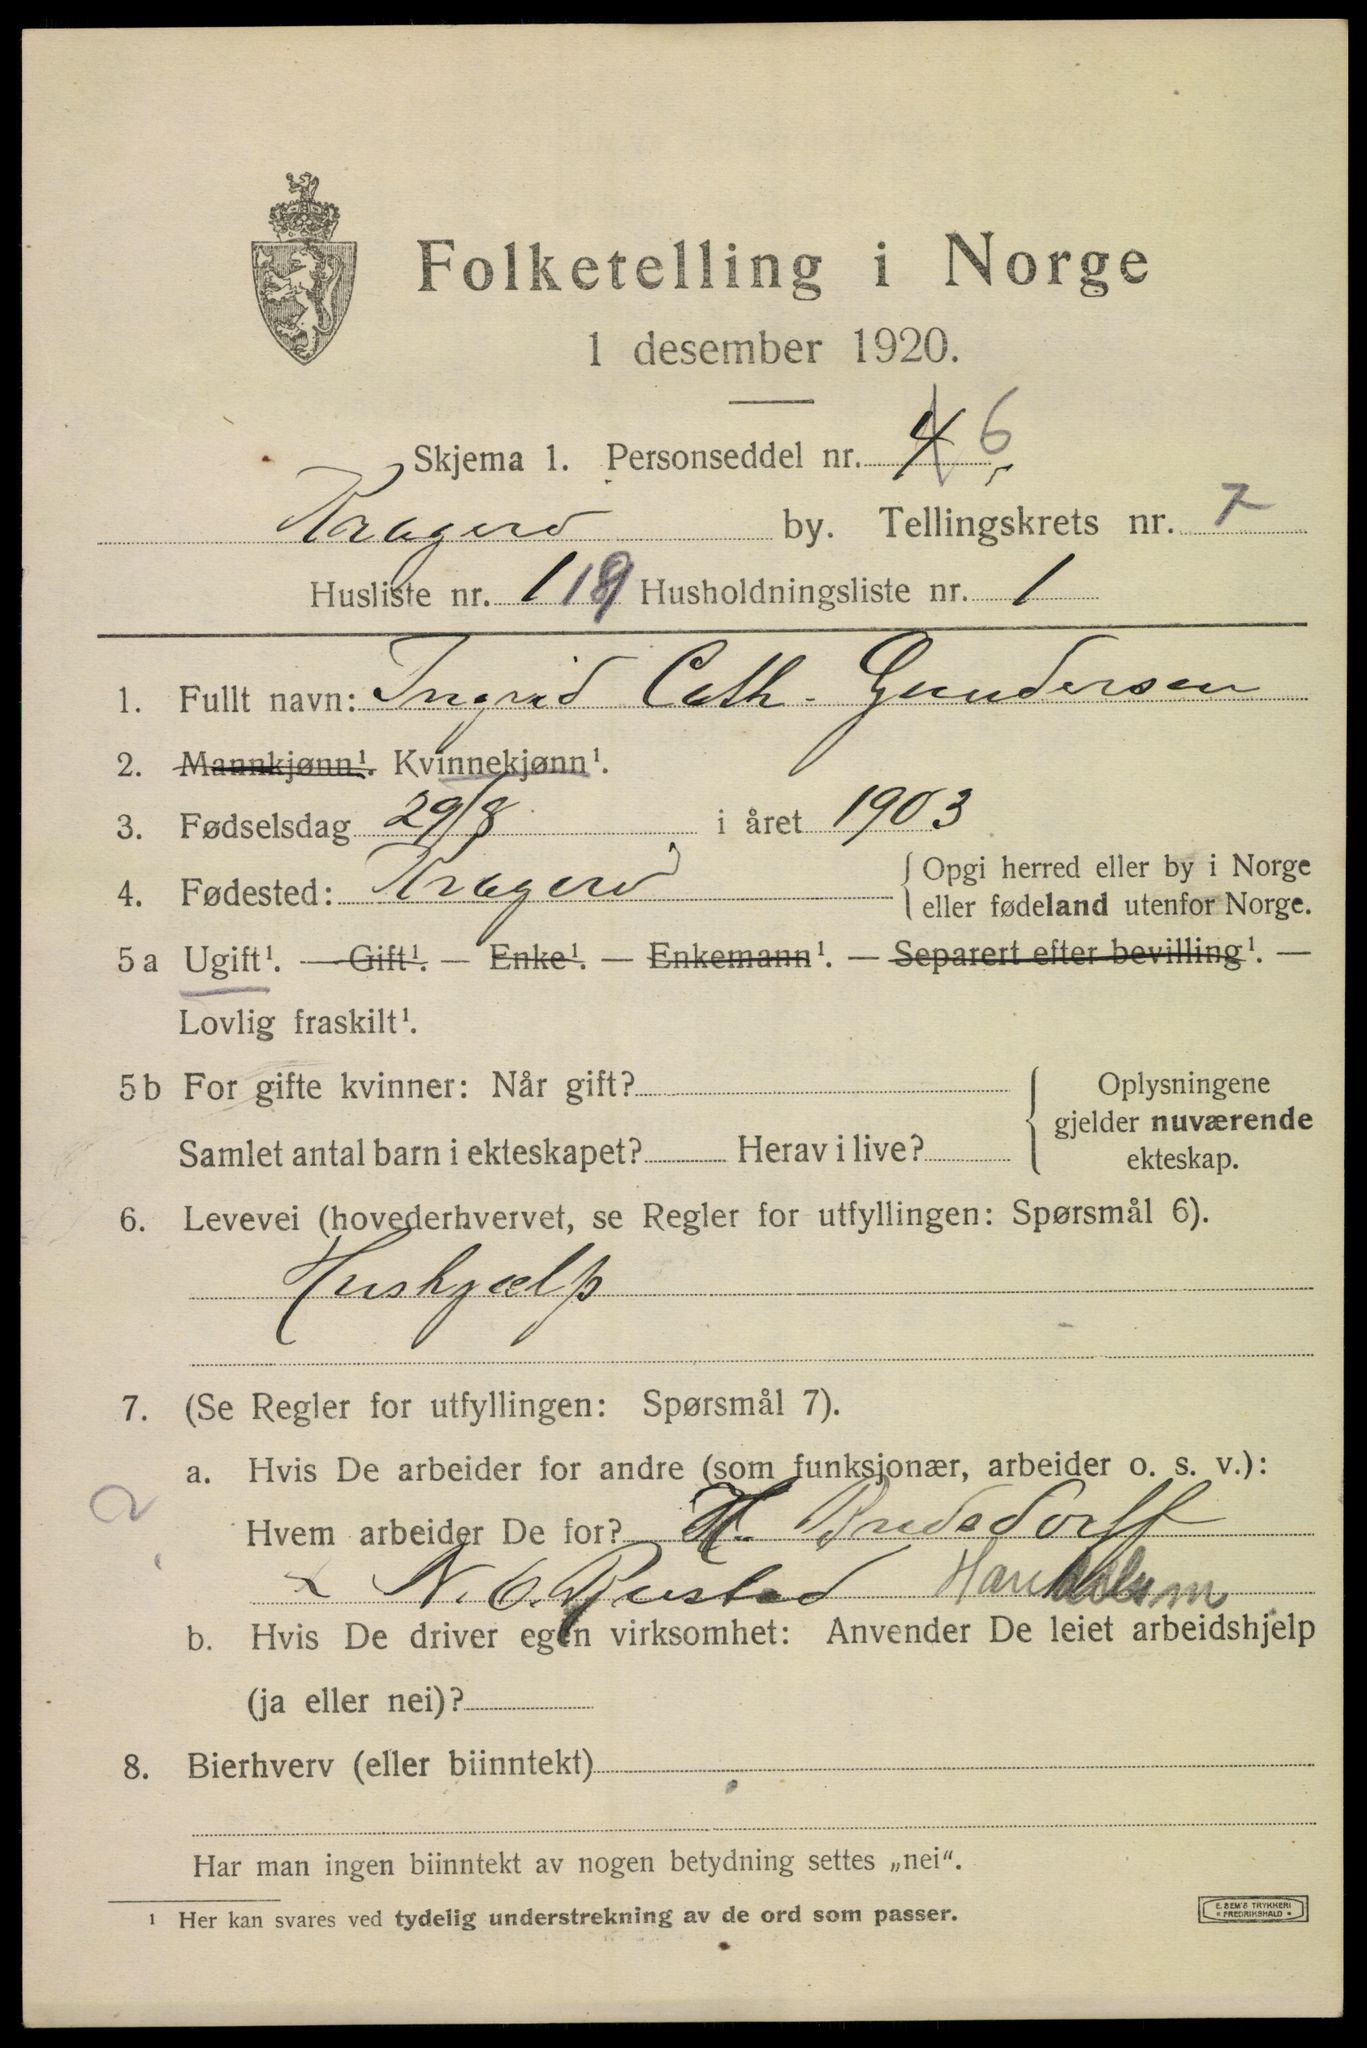 Folketelling i Norge
1 desember 1920.
Skjema 1. Personseddel nr. 4 6
Kragerø by. Tellingskrets nr. 7
Husliste nr. 118 Husholdningsliste nr. 1
1. Fullt navn: Ingrid Cath. Gundersen
2. Mannkjønn¹. Kvinnekjønn¹.
3. Fødselsdag 29/8 i året 1903
4. Fødested: Kragerø { Opgi herred eller by i Norge
eller fødeland utenfor Norge.
5 a Ugift¹. — Gift¹. — Enke¹. — Enkemann¹. — Separert efter bevilling¹. —
Lovlig fraskilt¹.
5 b For gifte kvinner: Når gift? { Oplysningene
gjelder nuværende
Samlet antal barn i ekteskapet? Herav i live? ekteskap.
6. Levevei (hovederhvervet, se Regler for utfyllingen: Spørsmål 6).
Hushjælp
7. (Se Regler for utfyllingen: Spørsmål 7).
a. Hvis De arbeider for andre (som funksjonær, arbeider o. s. v.):
2
Hvem arbeider De for? H. Bredsdorff
N. O. Rustad
b. Hvis De driver egen virksomhet: Anvender De leiet arbeidshjelp
(ja eller nei)?
8. Bierhverv (eller biinntekt)
Har man ingen biinntekt av nogen betydning settes „nei“.
¹ Her kan svares ved tydelig understrekning av de ord som passer.
E. SEM'S TRYKKERI
* FREDRIKSHALD *